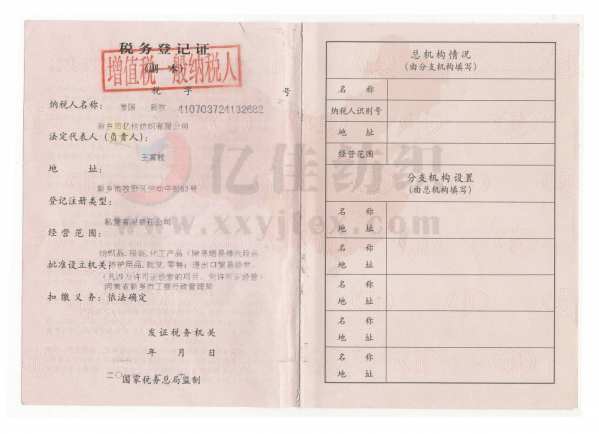 税务登记证
(副本)
增值税一般纳税人
税 字 410703724132682 号
纳税人名称:
新乡市亿佳纺织有限公司
法定代表人(负责人):
地 址:
新乡市牧野区
登记注册类型:
私营有限责任公司
经营范围:
纺织品、服装、化工产品(除易燃易爆危险品
批准设立机关:
河南省新乡市工商行政管理局
扣缴义务:依法确定
发证税务机关
年 月 日
二〇
国家税务总局监制
亿佳纺织
www.xxyjtex.com
总机构情况
(由分支机构填写)
名 称
纳税人识别号
地 址
经营范围
分支机构设置
(由总机构填写)
名 称
地 址
名 称
地 址
名 称
地 址
名 称
地 址
名 称
地 址